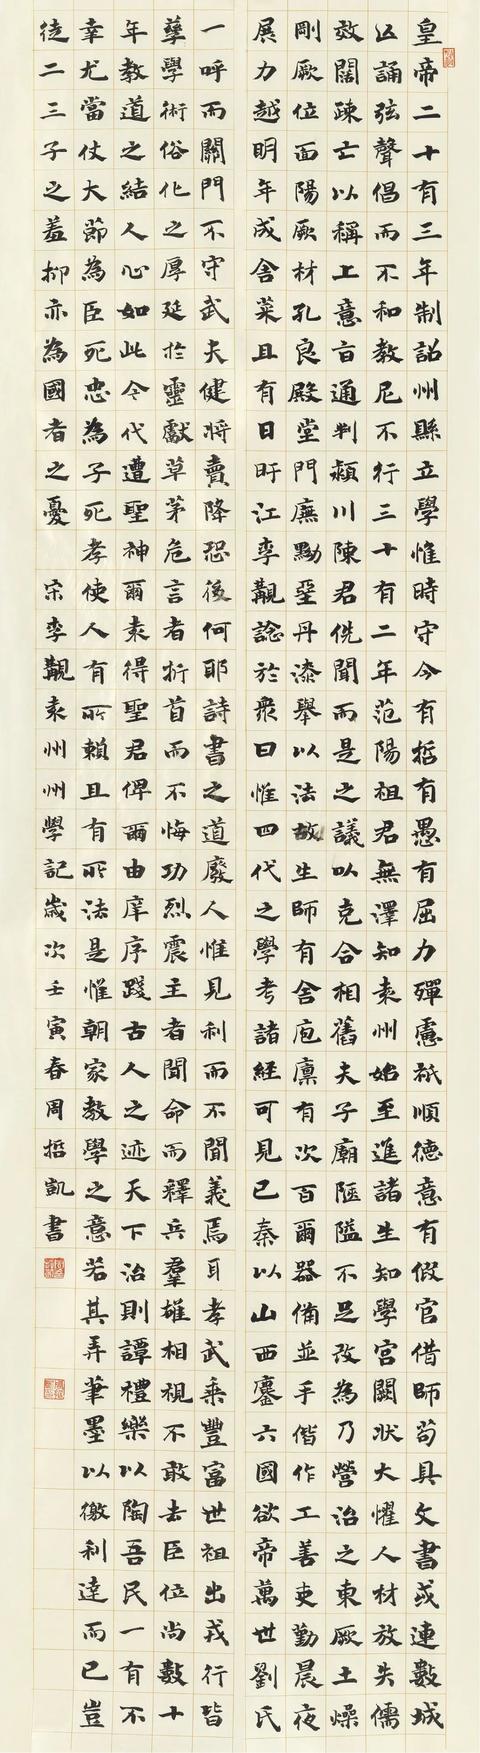 皇帝二十有三年制詔州縣立學惟時守令有哲有愚有屈力殫慮祇順德意有假官借師苟具文書或連數城
亾誦弦聲倡而不和教尼不行三十有二年范陽祖君無澤知袁州始至進諸生知學宮闕狀大懼人材放失儒
效闊疎亡以稱上意旨通判潁川陳君侁聞而是之議以克合相舊夫子廟陋隘不足改為乃營治之東厥土燥
剛厥位面陽厥材孔良殿堂門廡黝堊丹漆舉以法故生師有舍庖廩有次百爾器備並手偕作工善吏勤晨夜
展力越明年成舍菜且有日旴江李覯諗於衆曰惟四代之學考諸經可見已秦以山西鏖六國欲帝萬世劉氏
一呼而關門不守武夫健將賣降恐後何耶詩書之道廢人惟見利而不聞義焉耳孝武乘豐富世祖出戎行皆
孳學術俗化之厚延於靈獻草茅危言者折首而不悔功烈震主者聞命而釋兵羣雄相視不敢去臣位尚數十
年教道之結人心如此今代遭聖神爾袁得聖君俾爾由庠序踐古人之迹天下治則譚禮樂以陶吾民一有不
幸尤當仗大節為臣死忠為子死孝使人有所賴且有所法是惟朝家教學之意若其弄筆墨以徼利達而已豈
徒二三子之羞抑亦為國者之憂 宋李覯袁州州學記歲次壬寅春周哲凱書